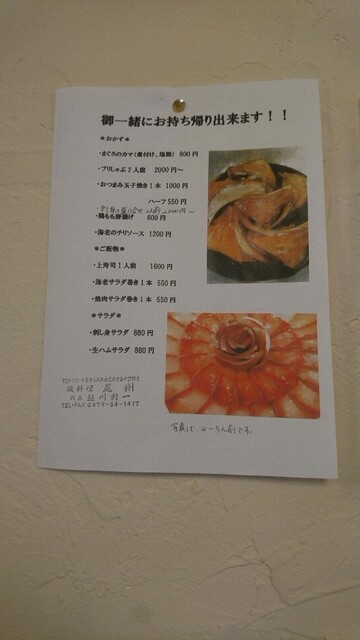 御一緒にお持ち帰り出来ます！！
＊おかず＊
・まぐろのカマ（煮付け、塩焼） 800円
・ブリしゃぶ２人前 2000円～
・おつまみ玉子焼き１本 1000円
ハーフ550円
2000円～
・鶏もも唐揚げ 600円
・海老のチリソース 1200円
＊ご飯物＊
・上寿司１人前 1600円
・海老サラダ巻き１本 550円
・焼肉サラダ巻き１本 550円
＊サラダ＊
・刺し身サラダ 880円
・生ハムサラダ 880円
磯料理
TEL・FAX 0479-34-1417
写真は 4～5人前です。